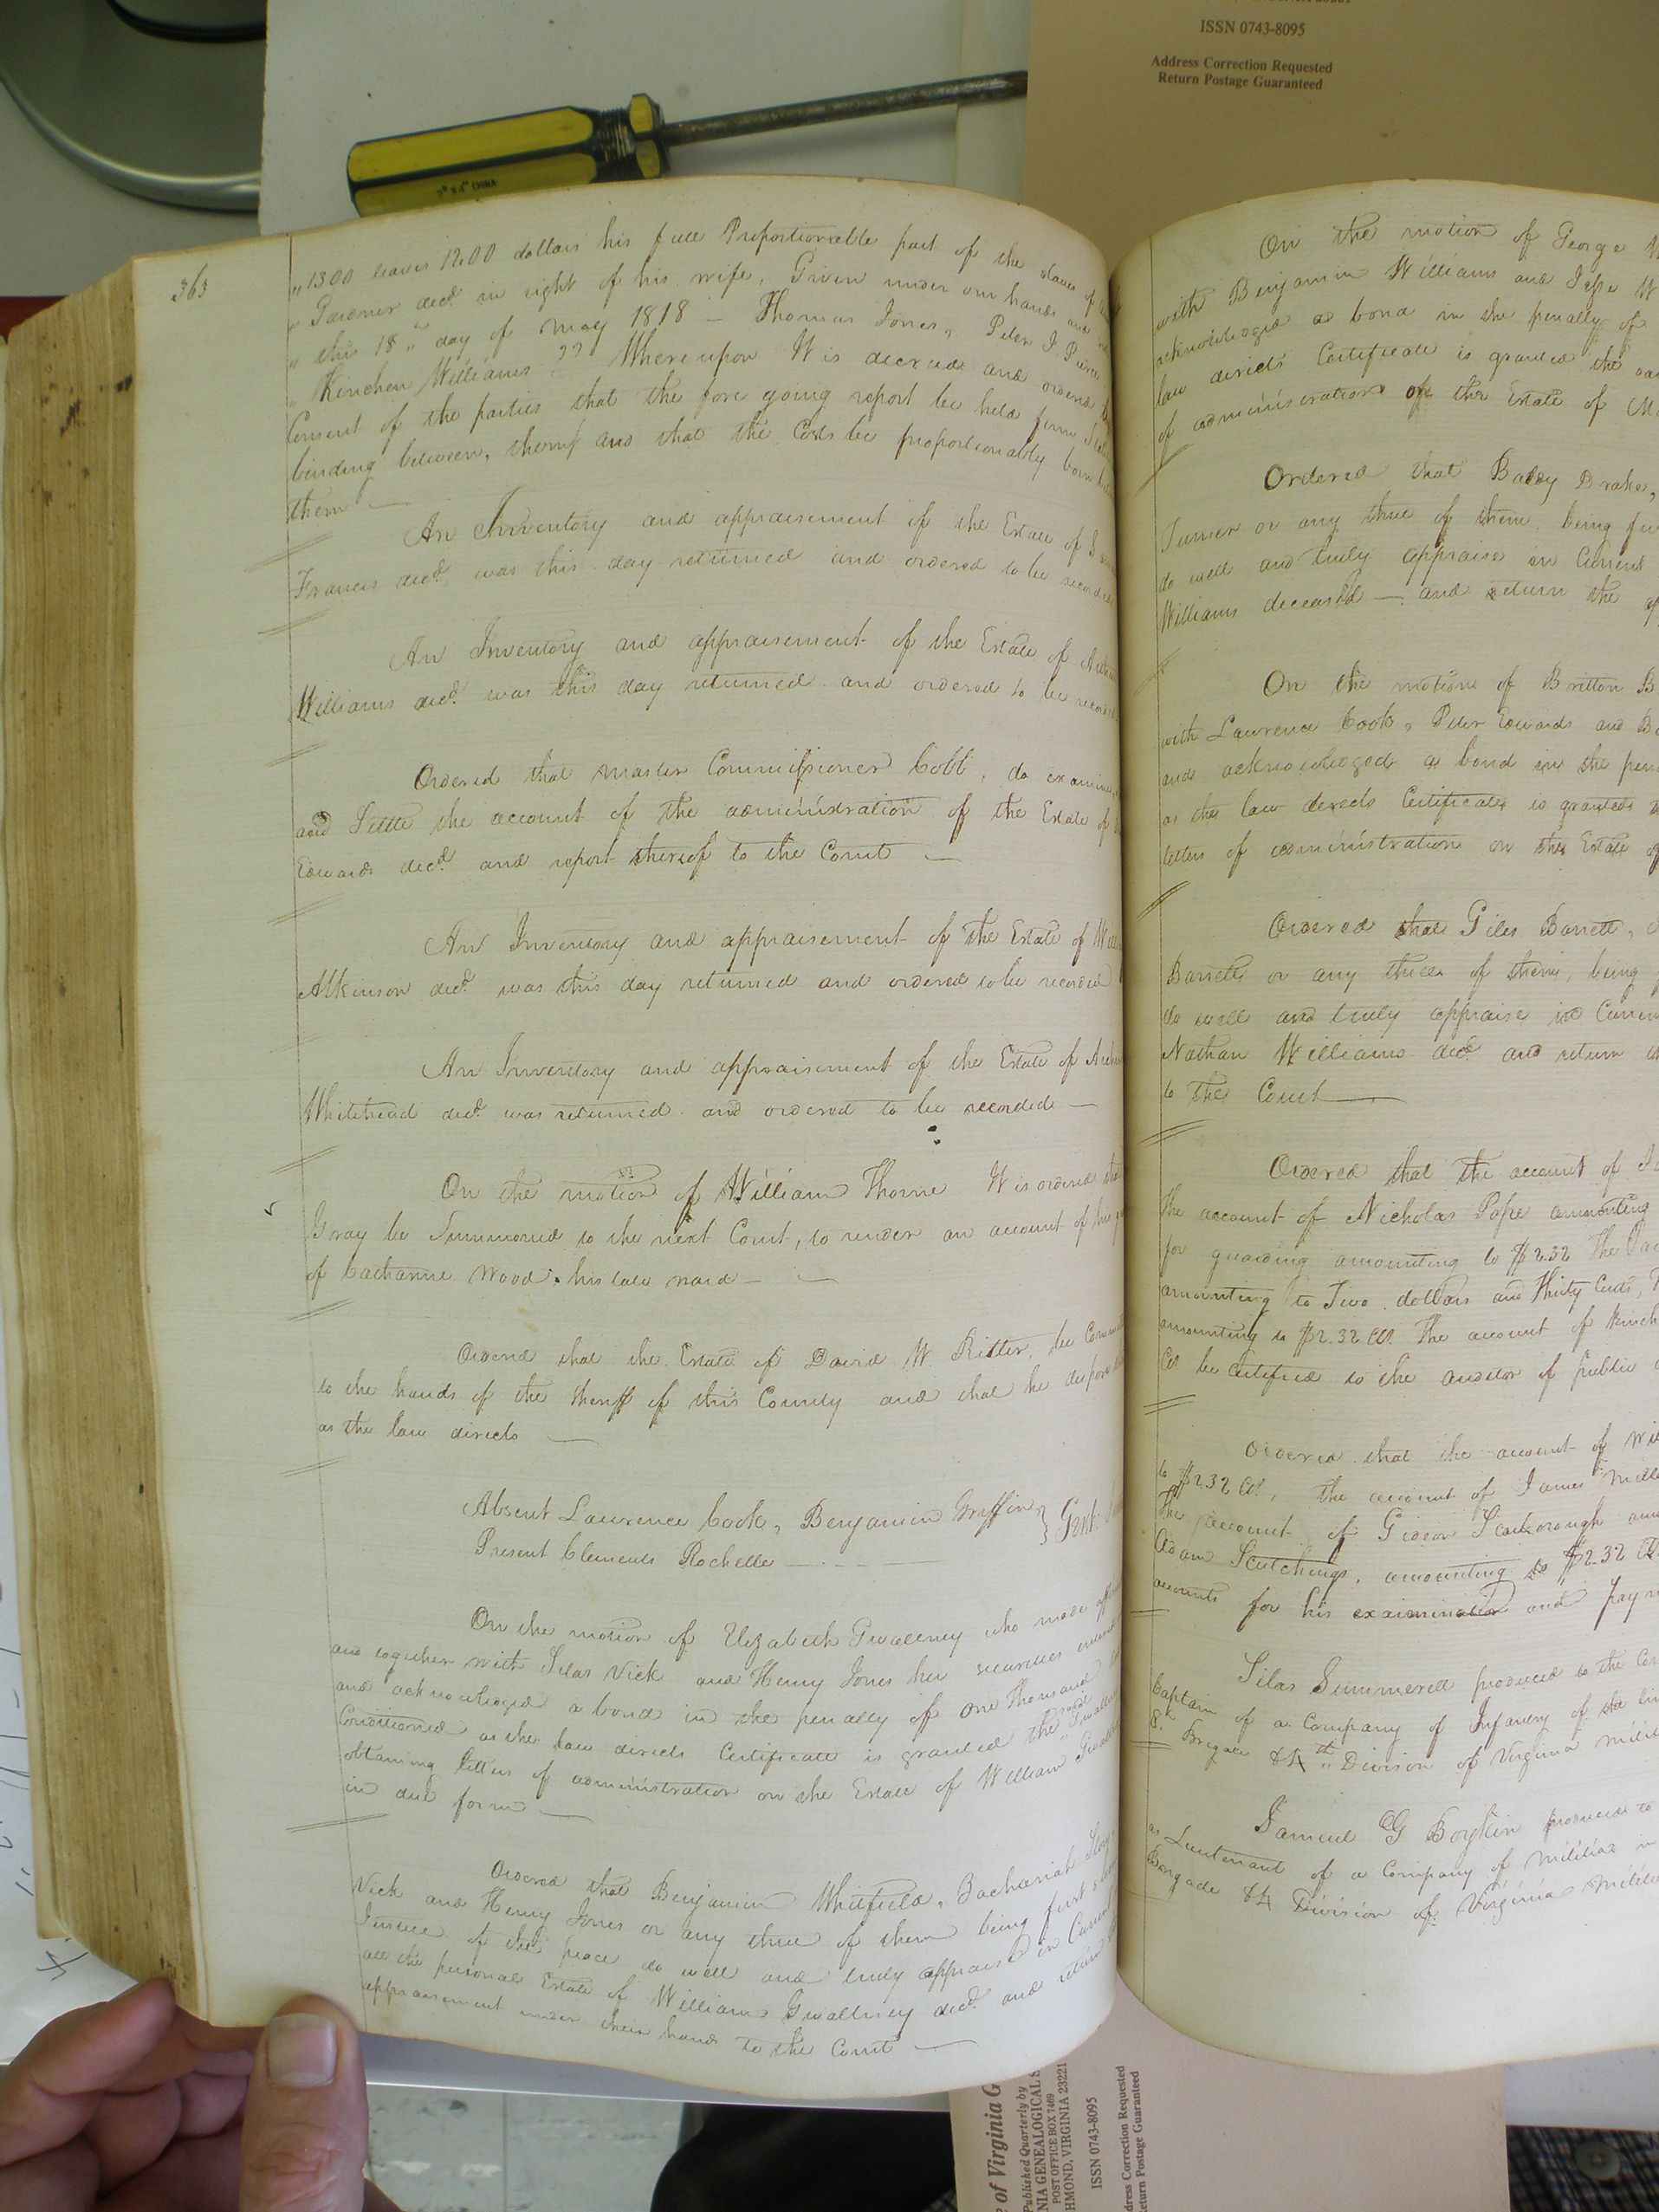 ISSN 0743-8095
Address Correction Requested
Return Postage Guaranteed
363
"1300 leaves 1200 dollars his full Proportionable part of the slaves of
" Gardner decd. in right of his wife, Given under our hands and
" this 18th day of may 1818 — Thomas Jones, Peter J. Pierce
" Kinchen Williams" Whereupon It is decreed and ordered by
Consent of the parties that the fore going report be held firm
binding between, them and that the Costs be proportionably born
them —
An Inventory and appraisement of the Estate of
Francis decd. was this day returned and ordered to be recorded
An Inventory and appraisement of the Estate of
Williams decd. was this day returned and ordered to be recorded
Ordered that master Commissioner Cobb, do examine
and Settle the account of the administration of the Estate of
Edwards decd. and report thereof to the Court —
An Inventory and appraisement of the Estate of
Atkinson decd. was this day returned and ordered to be recorded
An Inventory and appraisement of the Estate of
Whitehead decd. was returned and ordered to be recorded —
On the motion of William Thorne It is ordered that
Gray be Summoned to the next Court, to render an account of his
of Catharine Wood his late ward —
Ordered that the Estate of David W. Ritter, be
to the hands of the Sheriff of this County and that he
as the law directs —
Absent Lawrence Cook, Benjamin Griffin } Gent.
Present Clements Rochelle —
On the motion of Elizabeth Gwaltney who made
and together with Silas Vick and Henry Jones her securities entered
and acknowledged a bond in the penalty of One thousand
Conditioned as the law directs Certificate is granted the said
obtaining letters of administration on the Estate of William
in due form —
Ordered that Benjamin Whitfield, Zachariah
Vick and Henry Jones or any three of them being first
Justice of the peace do well and truly appraise in Current
all the personal Estate of William Gwaltney decd. and return
appraisement under their hands to the Court —
On the motion of George
with Benjamin Williams and Jesse
acknowledged a bond in the penalty of
law directs Certificate is granted the
of administration of the Estate of
Ordered that Baley Drake,
Turner or any three of them being
do well and truly appraise in Current
Williams deceased — and return the
On the motion of Britton
with Lawrence Cook, Peter Edwards and
and acknowledged a bond in the
as the law directs Certificate is granted
letters of administration on the Estate of
Ordered that Giles Barrett,
Barrett or any three of them, being
do well and truly appraise in
Nathan Williams decd. and return
to the Court —
Ordered that the account of
The account of Nicholas Pope amounting
for guarding amounting to $2.32 The
amounting to Two dollars and Thirty Cents,
amounting to $2.32 Cts. The account of
Cts be Certified to the auditor of public
Ordered that the account of
to $2.32 Cts, the account of James
The account of Gideon Scarborough
Adam Scutchings, amounting to $2.32
accounts for his examination and
Silas Summerell produced to the
Captain of a Company of Infantry of the
Brigade & 4th Division of Virginia
Samuel G Boykin produced to
as Lieutenant of a Company of militia in
Bargade & 4 Division of Virginia
of Virginia G
Published Quarterly by
NIA GENEALOGICAL S
POST OFFICE BOX 7469
HMOND, VIRGINIA 23221
ISSN 0743-8095
dress Correction Requested
eturn Postage Guaranteed